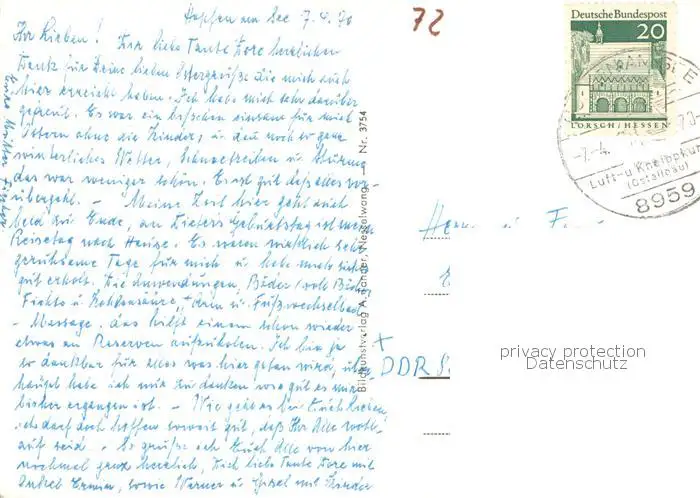 Hopfen am See 7.4.70
Ihr Lieben! Dir liebe Tante Dore herzlichen
Dank für Deine lieben Ostergrüße die mich auch
hier erreicht haben. Ich habe mich sehr darüber
gefreut. Es war ein bisschen einsam für mich
Ostern ohne die Kinder, u. dann noch so ganz
winterliches Wetter, Schneetreiben u. Stürme
das war weniger schön. Es ist gut daß alles vor-
übergeht. - Meine Zeit hier geht auch
bald zu Ende, an Dieters Geburtstag ist mein
Reisetag nach Hause. Es waren wirklich sehr
geruhsame Tage für mich u. habe mich
gut erholt. Die Anwendungen, Bäder
Fichte u. Kohlensäure, + Arm u. Fußwechselbad
- Massage, das hilft einem schon wieder
etwas an Reserven aufzuholen. Ich bin ja
so dankbar für alles was hier getan wird, über
haupt habe ich nur zu danken wie gut es mir
bisher ergangen ist. - Wie geht es bei Euch Lieben,
ich darf doch hoffen soweit gut, daß Ihr Alle wohl-
auf seid. - So grüße ich Euch Alle von hier
nochmal ganz herzlich, Dich liebe Tante Dore mit
Onkel Erwin, sowie Werner u. Gisel mit Kinder
Eure Mutter
72
Deutsche Bundespost
20
LORSCH/HESSEN
-7.-4. 70-
Luft-u Kneippkur
(Ostallgäu)
8959
Bildkunstverlag A. Zander, Nesselwang. — Nr. 3754
+
DDR
privacy protection
Datenschutz